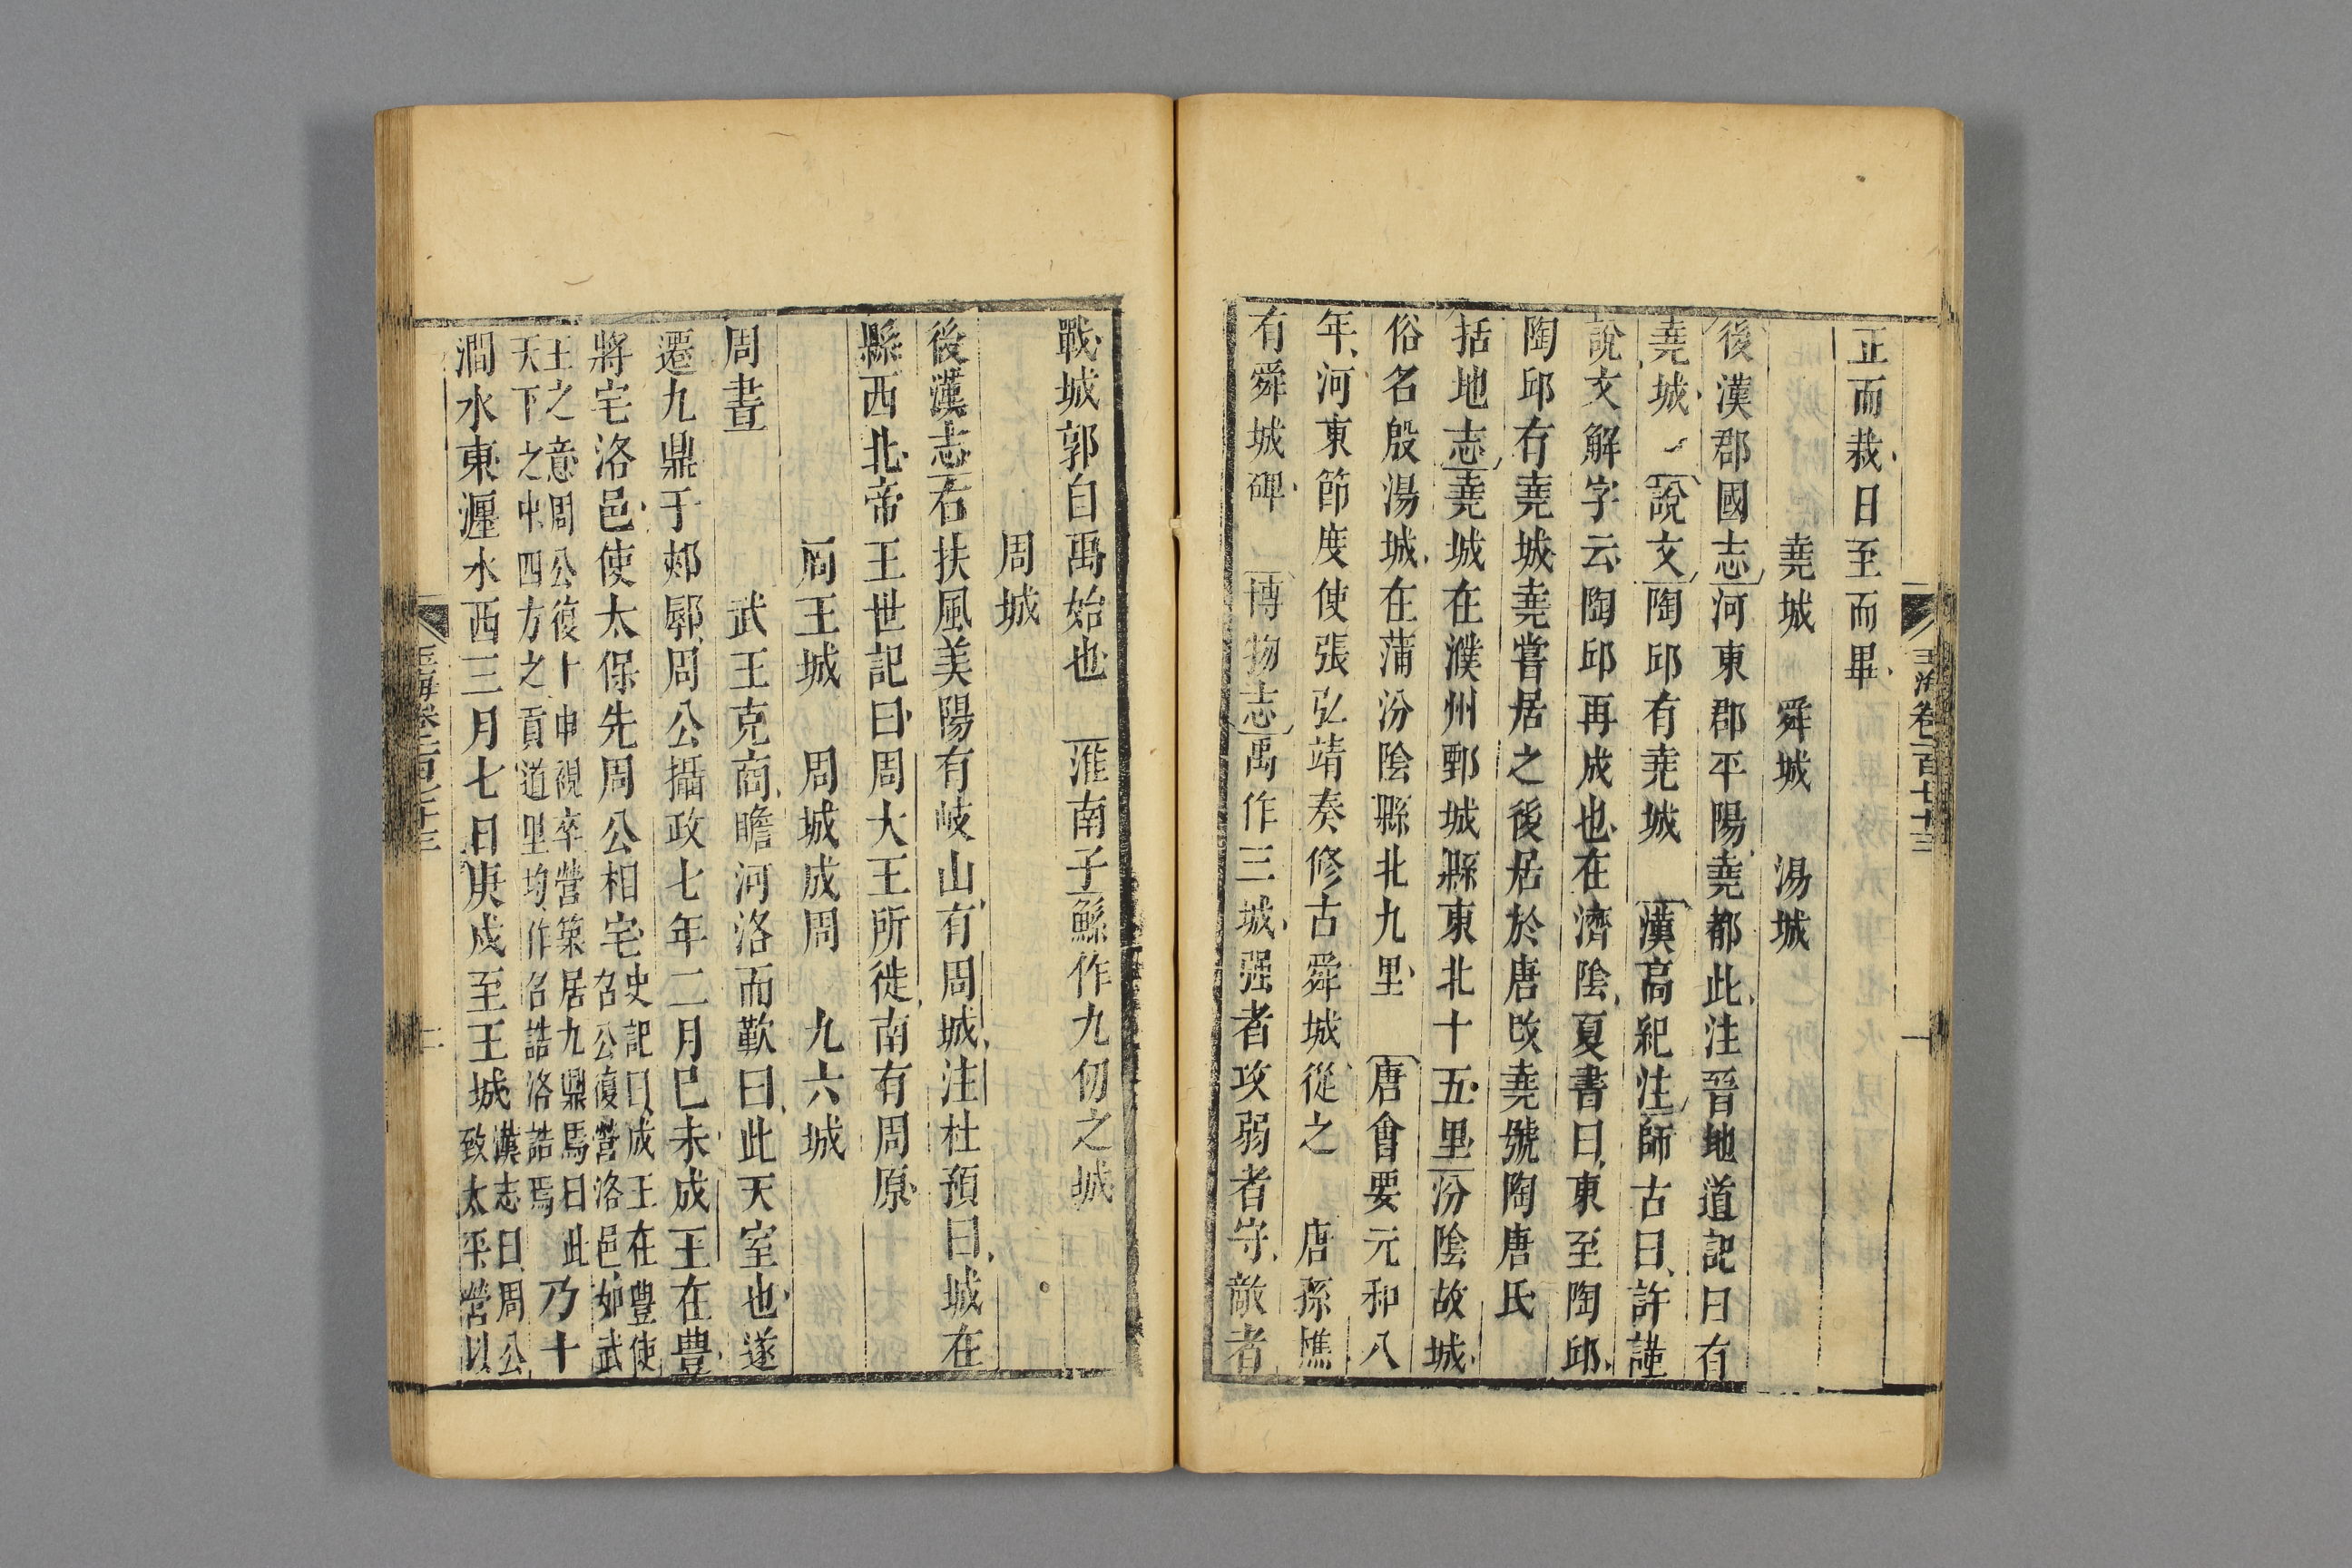 正而栽日至而畢
堯城　舜城　湯城
後漢郡國志河東郡平陽堯都此注晉地道記曰有
堯城　說文陶邱有堯城　漢高紀注師古曰許謹
說文解字云陶邱再成也在濟陰夏書曰東至陶邱
陶邱有堯城堯嘗居之後居於唐故堯號陶唐氏
括地志堯城在濮州鄄城縣東北十五里汾陰故城
俗名殷湯城在蒲汾陰縣北九里　唐會要元和八
年河東節度使張弘靖奏修古舜城從之　唐孫樵
有舜城碑　博物志禹作三城强者攻弱者守敵者
玉海卷一百七十三
戰城郭自禹始也　淮南子鯀作九仞之城
周城
後漢志右扶風美陽有岐山有周城注杜預曰城在
縣西北帝王世記曰周大王所徙南有周原
周王城　周城成周　九六城
周書　武王克商瞻河洛而歎曰此天室也遂
遷九鼎于郟鄏周公攝政七年二月巳未成王在豐
將宅洛邑使太保先周公相宅史記曰成王在豐使
召公復營洛邑如武
王之意周公復卜申視卒營築居九鼎焉曰此
天下之中四方之貢道里均作召誥洛誥焉
乃十
澗水東瀍水西三月七日庚戌至王城漢志曰周公
致太平營以
玉海卷一百七十三
二